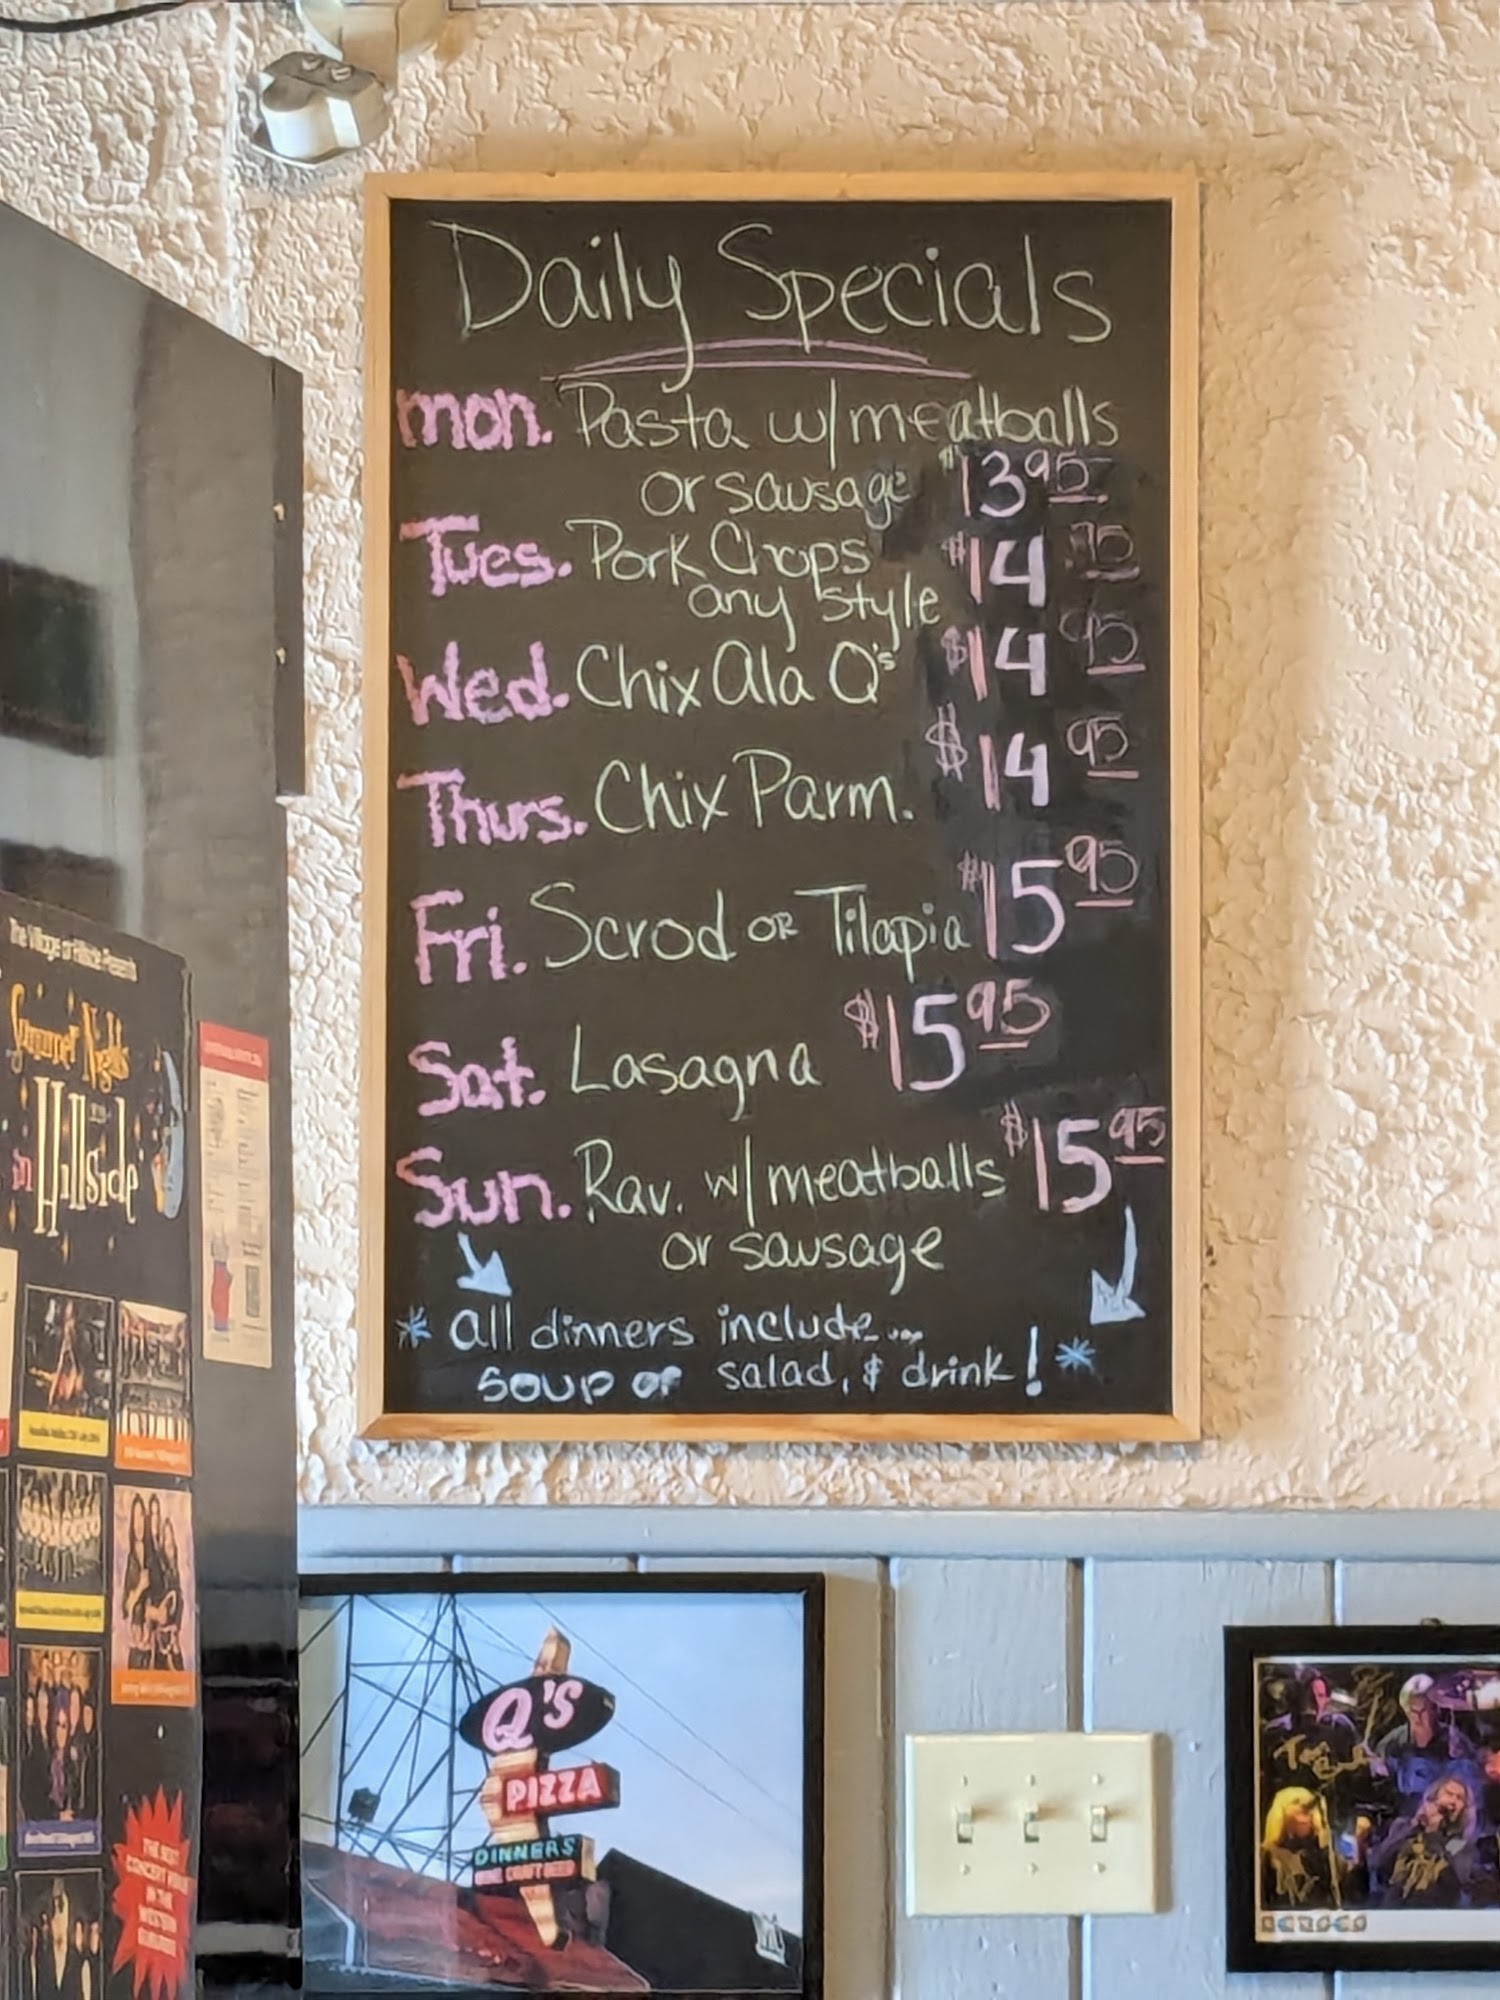 Daily Specials
mon. Pasta w/ meatballs
or sausage $13 95
Tues. Pork Chops $14 .95
any style
Wed. Chix Ala Q's $14 95
Thurs. Chix Parm. $14 95
Fri. Scrod OR Tilapia $15 95
Sat. Lasagna $15 95
Sun. Rav. w/ meatballs $15 95
or sausage
* all dinners include...
soup or salad, & drink! *
The Village of Hillside Presents
Summer Nights
in Hillside
THE BEST
CONCERT
IN THE
WESTERN
Q's
PIZZA
DINNERS